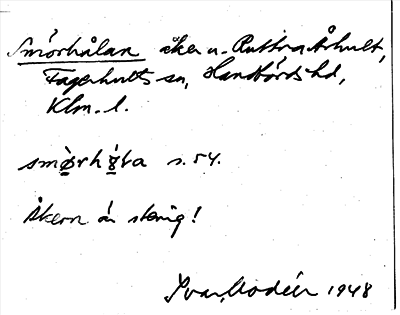 Smörhålan åker u. Ruttra Århult,
Fagerhults sn, Handbörds hd,
Klm. l.
smø̀rhǫ́ḷa s. 54.
Åkern är stenig!
Ivar Modéer 1948